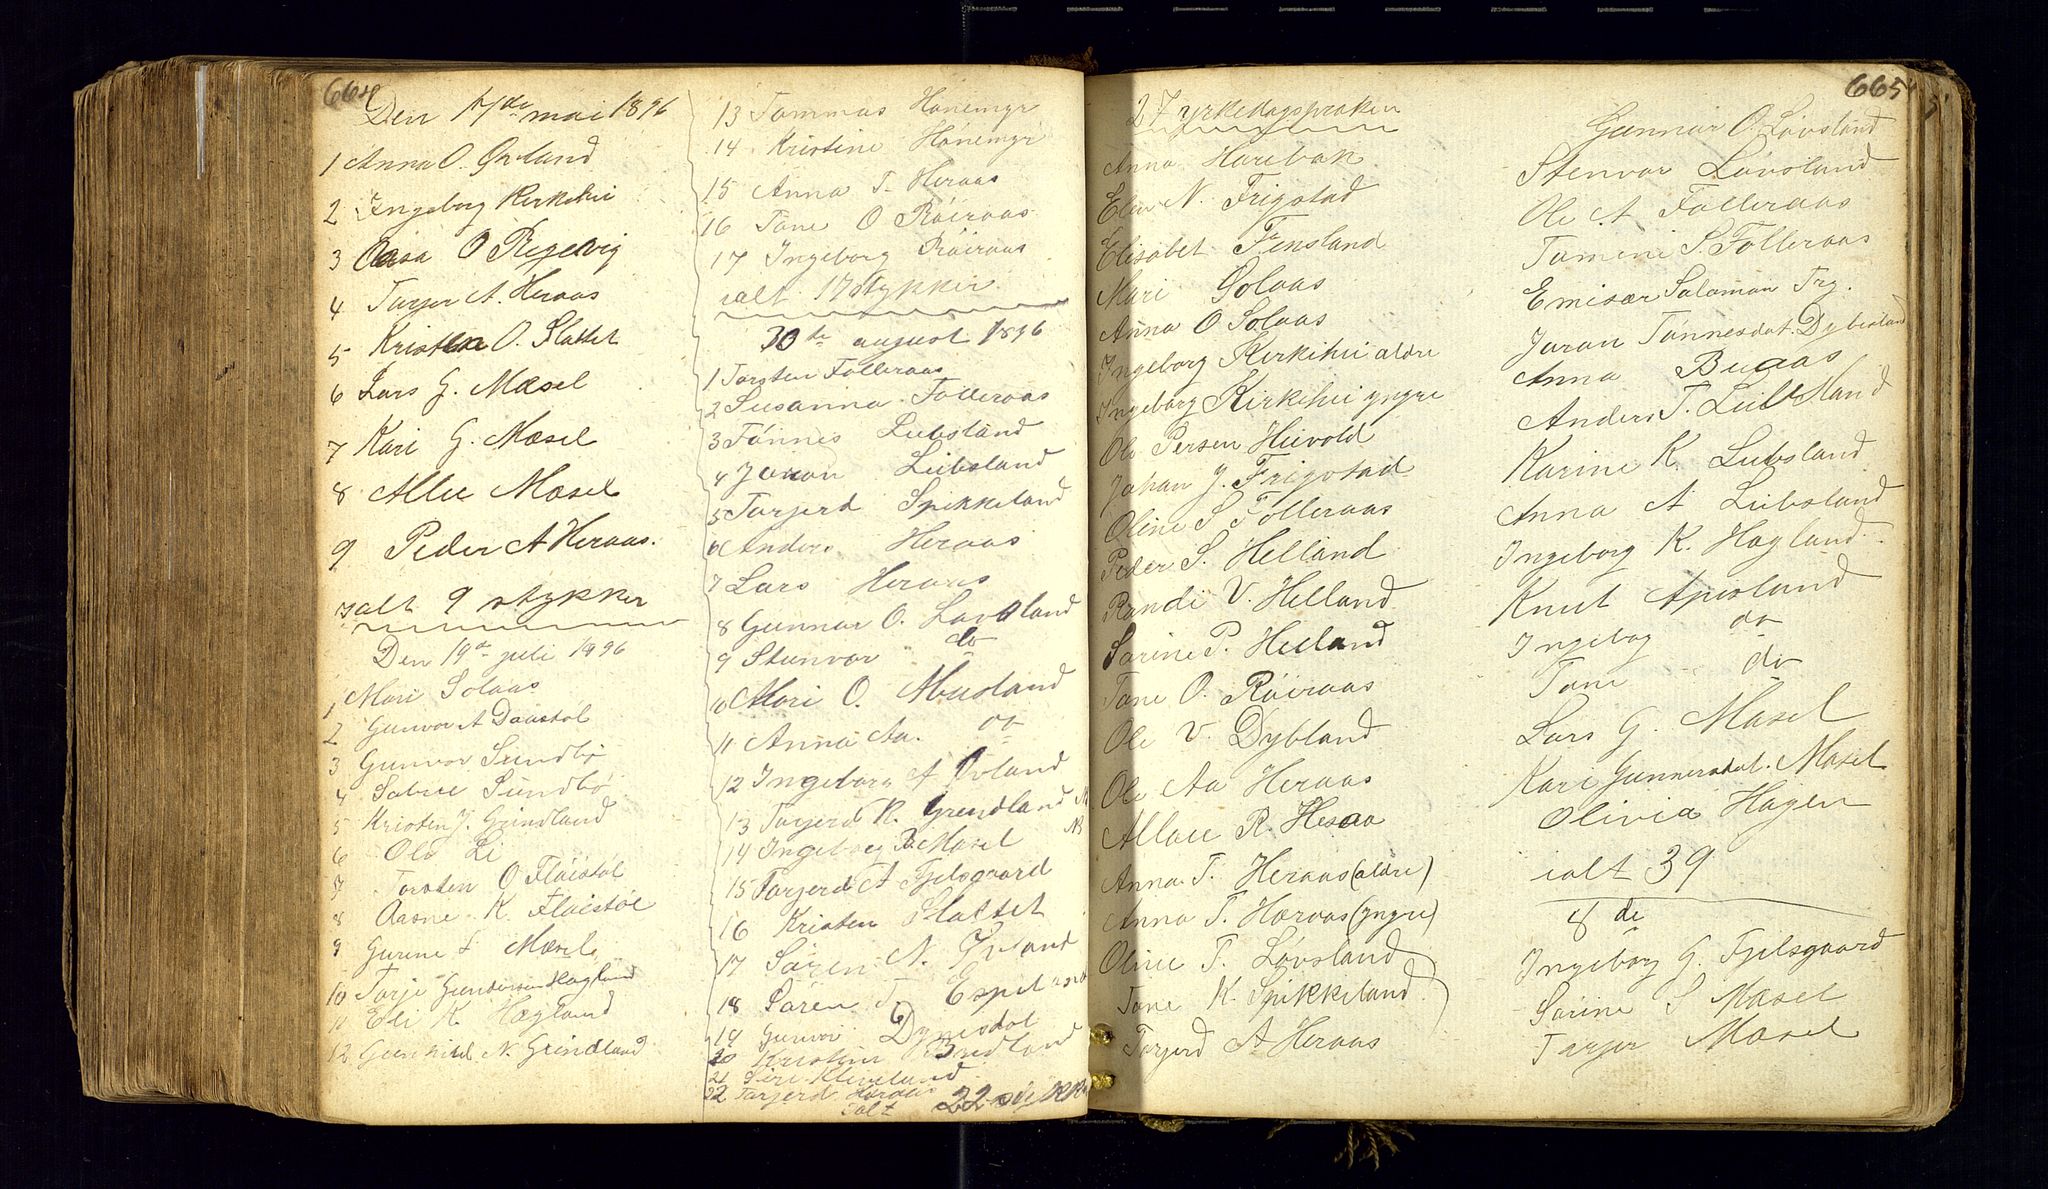 664
Den 17de mai 1896
1 Anna O. Øvland
2 Ingeborg Kirkehei
3 Aasa O Regevig
4 Tarjer A. Heraas
5 Kristen O. Slattet
6 Lars G. Mæsel
7 Kari G. Mæsel
8 Allie Mæsel
9 Peder A Heraas.
ialt 9 stykker
Den 19de juli 1896
1 Mari Solaas
2 Gunvor A Daastøl
3 Gunvor Sundbø
4 Sabue Sundbø
5 Kristen J. Grindland
6 Ole Li
7 Torsten O Fløistøl
8 Aasne K. Fløistøl
9 Gurine S Mæsel
10 Tarje Gundersen Hægland
11 Eli K Hægland
12 Gunhild N. Grindland
13 Tommas Hønemyr
14 Kristine Hønemyr
15 Anna T. Heraas
16 Tone O Røiraas
17 Ingeborg Røiraas
ialt 17 stykker
30te august 1896
1 Torsten Folleraas
2 Susanna Folleraas
3 Tønnes Lubsland
4 Joran Lubsland
5 Tarjerd Spikkeland
6 Anders Heraas
7 Lars Heraas
8 Gunnar O. Løvsland
9 Stenvor do
10 Mari O. Abusland
11 Anna Aa. do
12 Ingeborg A Øvland
13 Tarjerd K. Grindland
14 Ingeborg B. Mæsel
15 Tarjerd A Fjelsgaard
16 Kristen Slattet
17 Søren N. Øvland
18 Søren T Espelund
19 Gunvor Dynesdol
20 Kristen
21 Siri Kleveland
22 Tarjerd Heraas
Ialt 22 stykker
665
27 yrkedagspreken
Anna Harebak
Elen N. Frigstad
Elisabet Fensland
Mari Solaas
Anna O Solaas
Ingeborg Kirkehei ældre
Ingeborg Kirkehei yngre
Ole Persen Heivold
Johan J. Frigstad
Oline S Folleraas
Peder S. Helland
Randi V. Helland
Sørine P. Heeland
Tone O. Røiraas
Ole V. Dybland
Ole Aa Heraas
Allau R. Hesaa
Anna T. Heraas (ældre)
Anna T. Hæraas (yngre)
Oline T. Løvsland
Tone K. Spikkeland
Tarjerd A Heraas
Gunnar O. Løvsland
Stenvor Løvsland
Ole A Folleraas
Tomine S. Folleraas
Emisær Salamon Trg.
Joran Tønnesdat. Dybesland
Anna Buaas
Anders T. Lubsland
Karine K. Lubsland
Anna A Lubsland
Ingeborg K. Hægland
Knut Apesland
Ingebog do
Tone do
Lars G. Mæsel
Kari Gunnersdat. Mæsel
Olivia Hagen
ialt 39
8de
Ingeborg G. Fjelsgaard
Sørine S Mæsel
Tarjer Mæsel